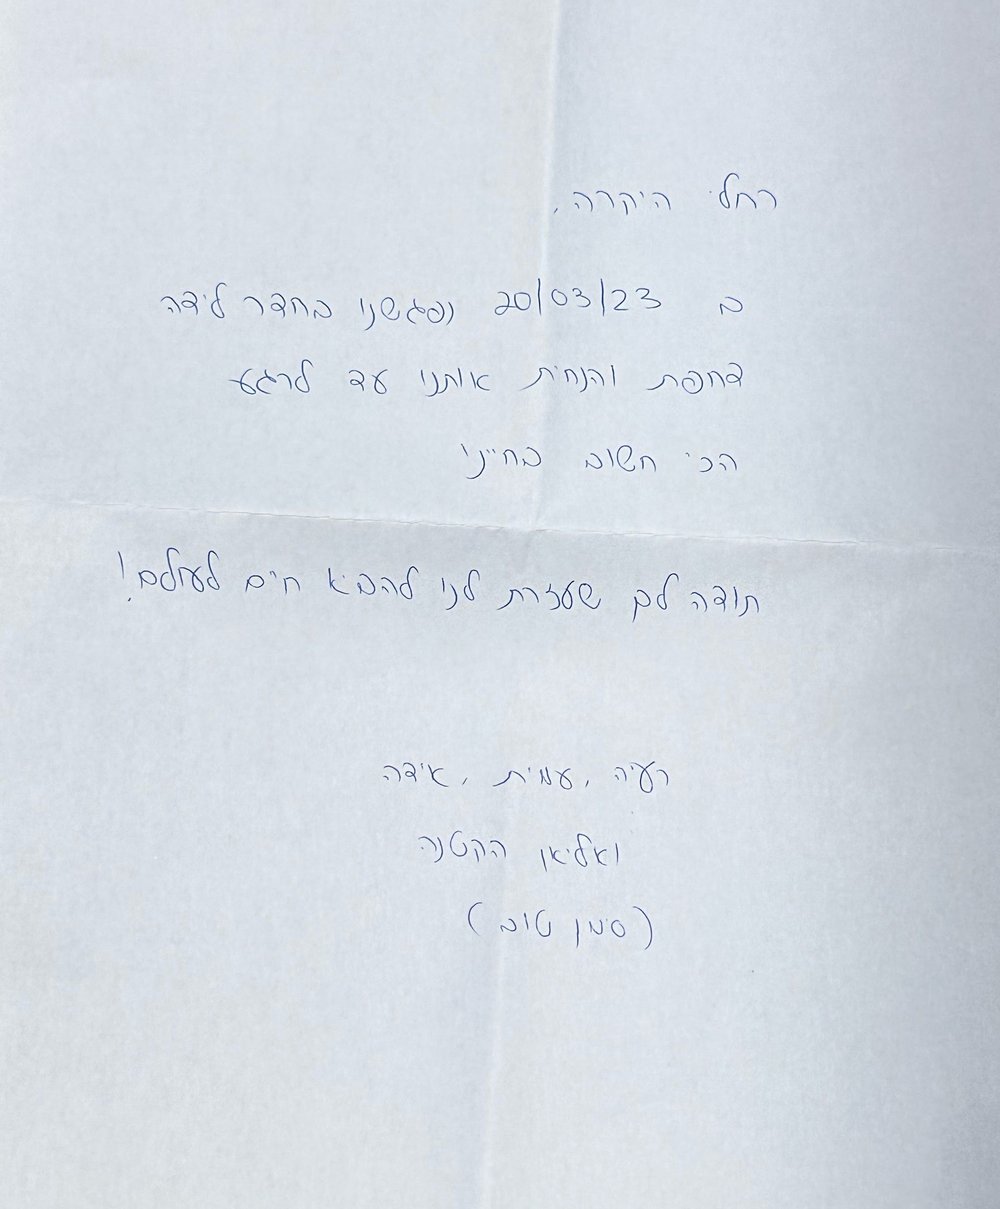 רחלי היקרה,
ב 20/03/23 נפגשנו בחדר לידה
דחפת והנחית אותנו עד לרגע
הכי חשוב בחיינו
תודה לך שעזרת לנו להביא חיים לעולם!
רעיה, עמית, אידה
ואליאן הקטנה
(סימן טוב)